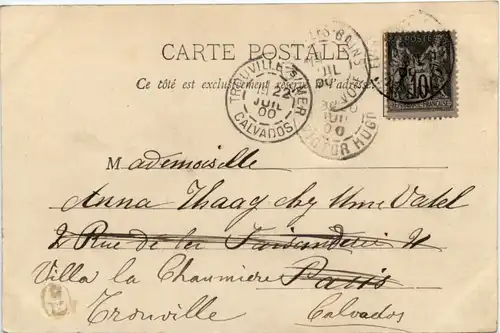 CARTE POSTALE
Ce côté est exclusivement réservé à l'adresse
TROUVILLE-S-MER
22
JUIL
00
CALVADOS
BAINS
VICTOR HUGO
POSTE
10
RÉPUBLIQUE FRANÇAISE
Mademoiselle
Anna Haag chez Mme Vatel
2 Rue de la Faisanderie 2
Villa la Chaumière Paris
Trouville Calvados